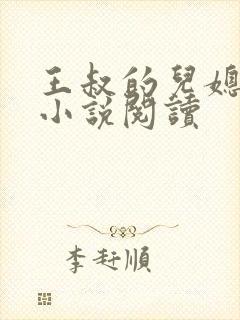 王叔的兒媳
小說閱讀
李玨順